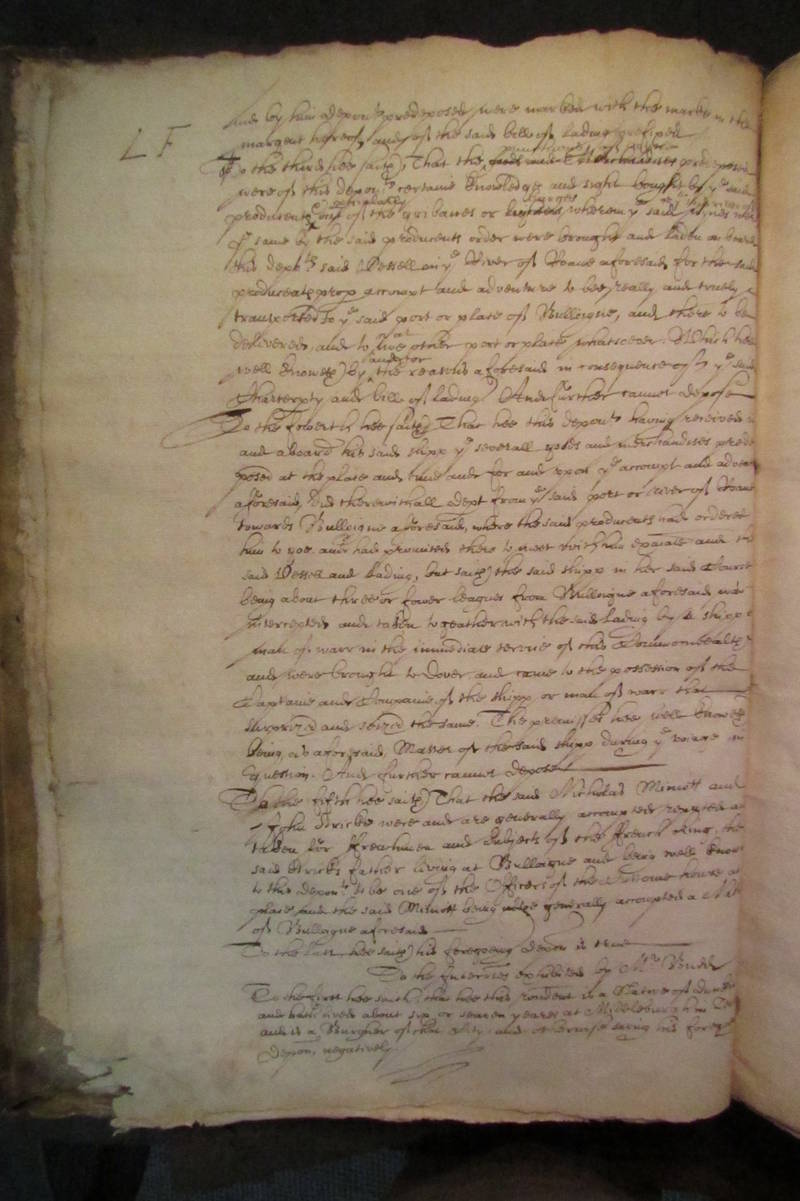 And by him depon:t predeposed were marked with the marke in the
L F
margent hereof, and of the said bills of lading
To the third hee saith, That the predeposed
were of this depon:ts certaine knowledge and sight bought by ye said
producents out of the gribanes or wherein ye said wines were
ye same by the said producents order were brought and laden on board
this depts said Vessell in ye River of aforesaid, for the said
producents prop accompt and adventure to bee really and truely
transported to ye said port or place of Bulloigne, and there to be
delivered, and to noe other port or place whatsoever. Which hee
well knoweth by the reasons aforesaid in consequence of ye said
Charterpty and bills of lading. And further cannot depose
To the fowerth hee saith That hee this depont having received
and aboard his said shipp ye severall goods and merchandises prede
posed at the place and time and for and upon ye accompt and adventure
aforesaid, did therewithall dept from ye said port or river of
towards Bulloigne aforesaid, where the said producents had ordered
him to goe and had promised there to meet with him and the
said Vessell and lading, but saith the said shipp in her said Course
being about three or fower leagues from Bulloigne aforesaid was
intercepted and taken togeather with the said lading by a shipp
man of warr in the immediate service of this Commonwealth
and were brought to Dover, and came to the possession of the
Captaine and Companie of the shipp or man of warr that
surprized and seized the same. The premisses hee well knoweth
being as aforesaid Master of the said shipp during ye voiage in
question. And further cannot depose
To the fifth hee saith That the said Nicholas Minott and
John Strickx were and are generally accompted reputed and
taken for ffrenchmen and Subjects of the ffrench King, the
said father living at Bulloigne and being well knowne
to this depont to be one of the Officers of the Custome house
place and the said Minott being generally accompted a
of Bulloigne aforesaid
To the last hee saith his foregoeing depon is true
To the Interries exhibited by Mr Budd
To the first hee saith that hee this rondent is a Native of
and hath lived about six or seaven yeares at Middleburgh in
and is a Burgher of that City, and otherwise saving his foreg
depon, negatively.